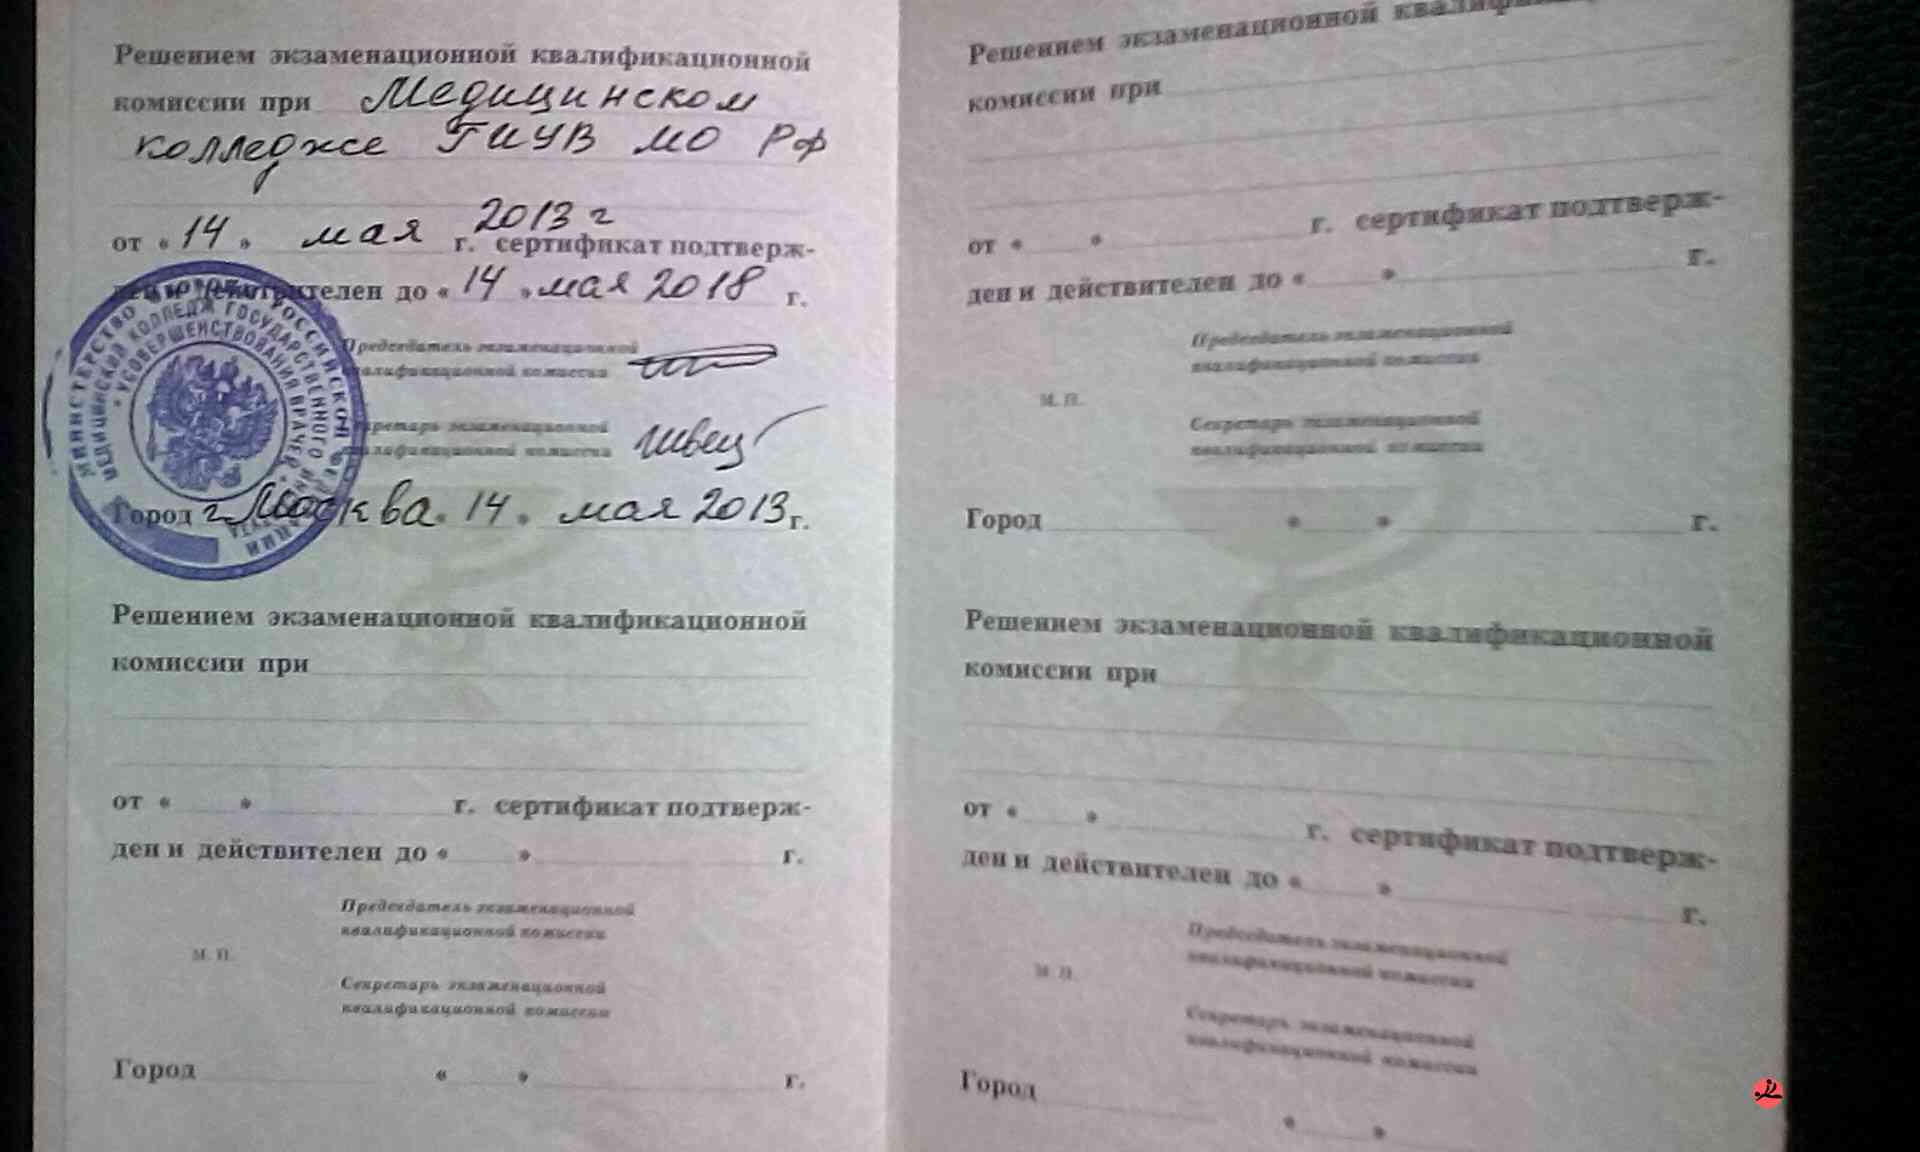 Решением экзаменационной квалификационной
комиссии при Медицинском
колледже ГИУВ МО РФ
от « 14 » мая 2013 г г. сертификат подтверж-
ден и действителен до « 14 » мая 2018 г.
Председатель экзаменационной
квалификационной комиссии
Секретарь экзаменационной
квалификационной комиссии Швец
Город г. Москва « 14 » мая 2013 г.
МИНИСТЕРСТВО ОБОРОНЫ РОССИЙСКОЙ ФЕДЕРАЦИИ
МЕДИЦИНСКИЙ КОЛЛЕДЖ ГОСУДАРСТВЕННОГО ИНСТИТУТА
УСОВЕРШЕНСТВОВАНИЯ ВРАЧЕЙ
Решением экзаменационной квалификационной
комиссии при
от « » г. сертификат подтверж-
ден и действителен до « » г.
Председатель экзаменационной
квалификационной комиссии
М. П.
Секретарь экзаменационной
квалификационной комиссии
Город « » г.
Решением экзаменационной
комиссии при
от « » г. сертификат подтверж-
ден и действителен до « » г.
Председатель экзаменационной
квалификационной комиссии
М. П.
Секретарь экзаменационной
квалификационной комиссии
Город « » г.
Решением экзаменационной квалификационной
комиссии при
от « » г. сертификат подтверж-
ден и действителен до « » г.
Председатель экзаменационной
квалификационной комиссии
М. П.
Секретарь экзаменационной
квалификационной комиссии
Город « »